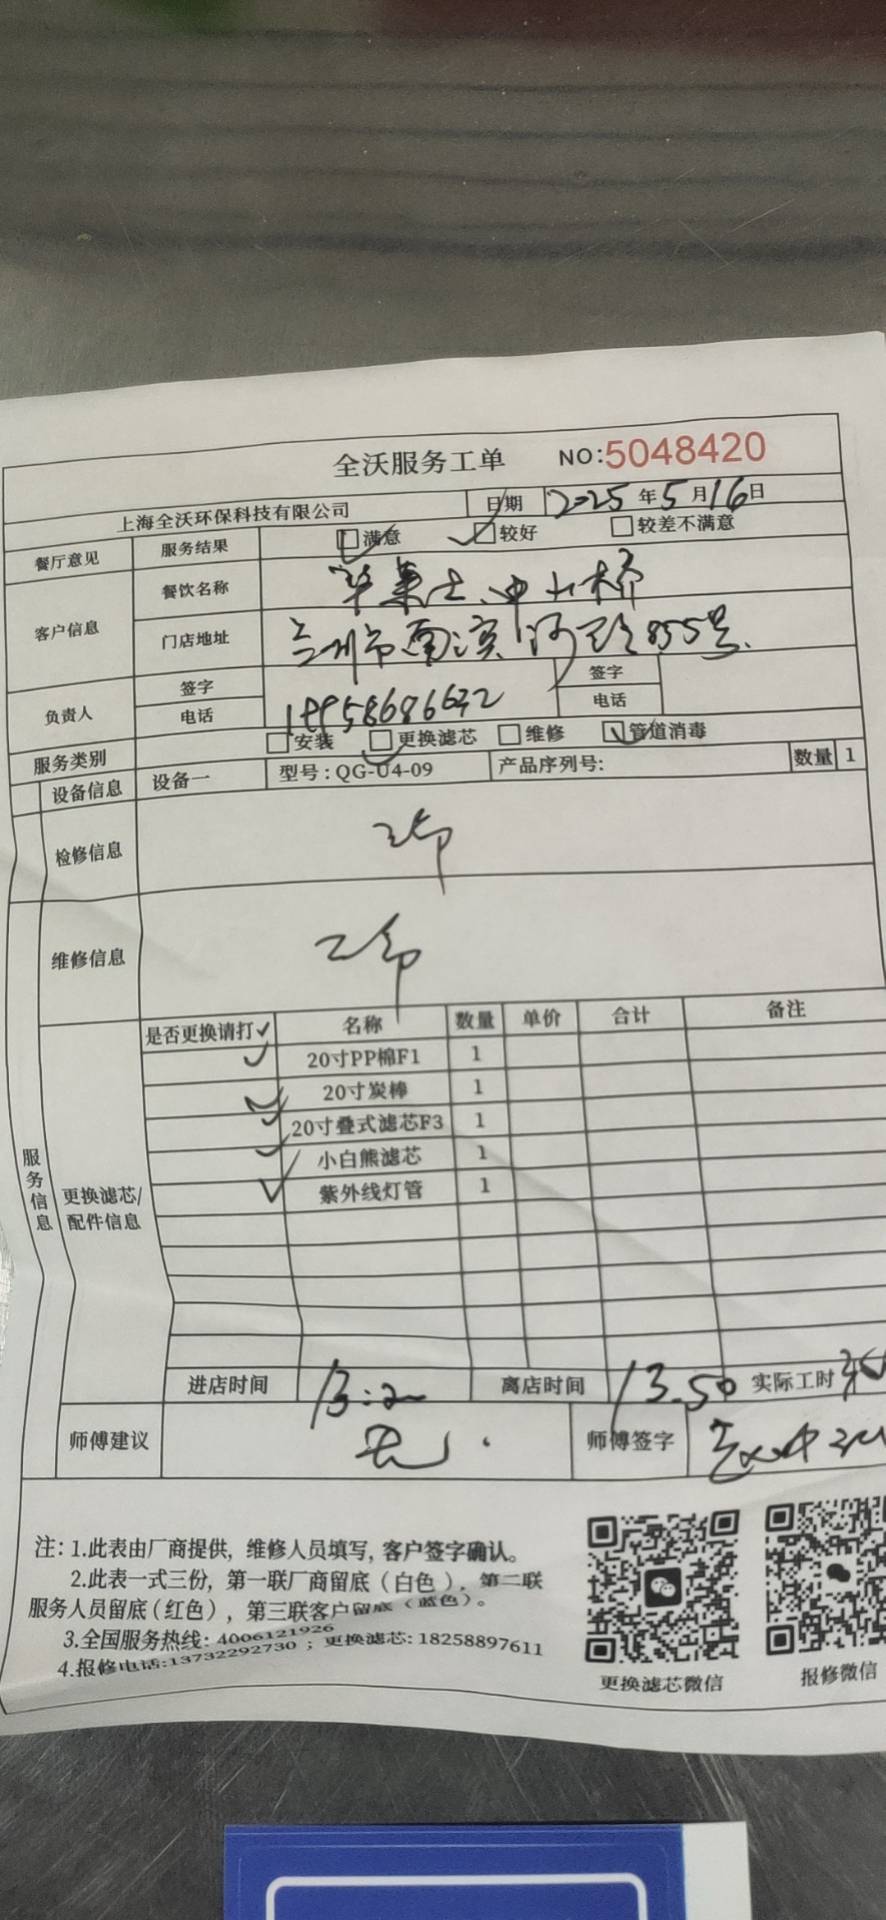 全沃服务工单 NO:5048420
上海全沃环保科技有限公司 日期 2025年5月16日
餐厅意见 服务结果 满意 较好 较差不满意
客户信息 餐饮名称 华莱士、中山桥
门店地址 兰州市南滨河路855号
负责人 签字 签字
电话 电话
服务类别 安装 更换滤芯 维修 管道消毒
设备信息 设备一 型号:QG-U4-09 产品序列号: 数量 1
检修信息
维修信息
服务信息
更换滤芯/配件信息
是否更换请打✓ 名称 数量 单价 合计 备注
✓ 20寸PP棉F1 1
✓ 20寸炭棒 1
✓ 20寸叠式滤芯F3 1
✓ 小白熊滤芯 1
✓ 紫外线灯管 1
进店时间 13:20 离店时间 13.50 实际工时
师傅建议 无. 师傅签字
注: 1.此表由厂商提供, 维修人员填写, 客户签字确认。
2.此表一式三份, 第一联厂商留底(白色), 第二联
服务人员留底(红色), 第三联客户留底(蓝色)。
3.全国服务热线: 4006121926
4.报修电话:13732292730 ; 更换滤芯: 18258897611
更换滤芯微信 报修微信